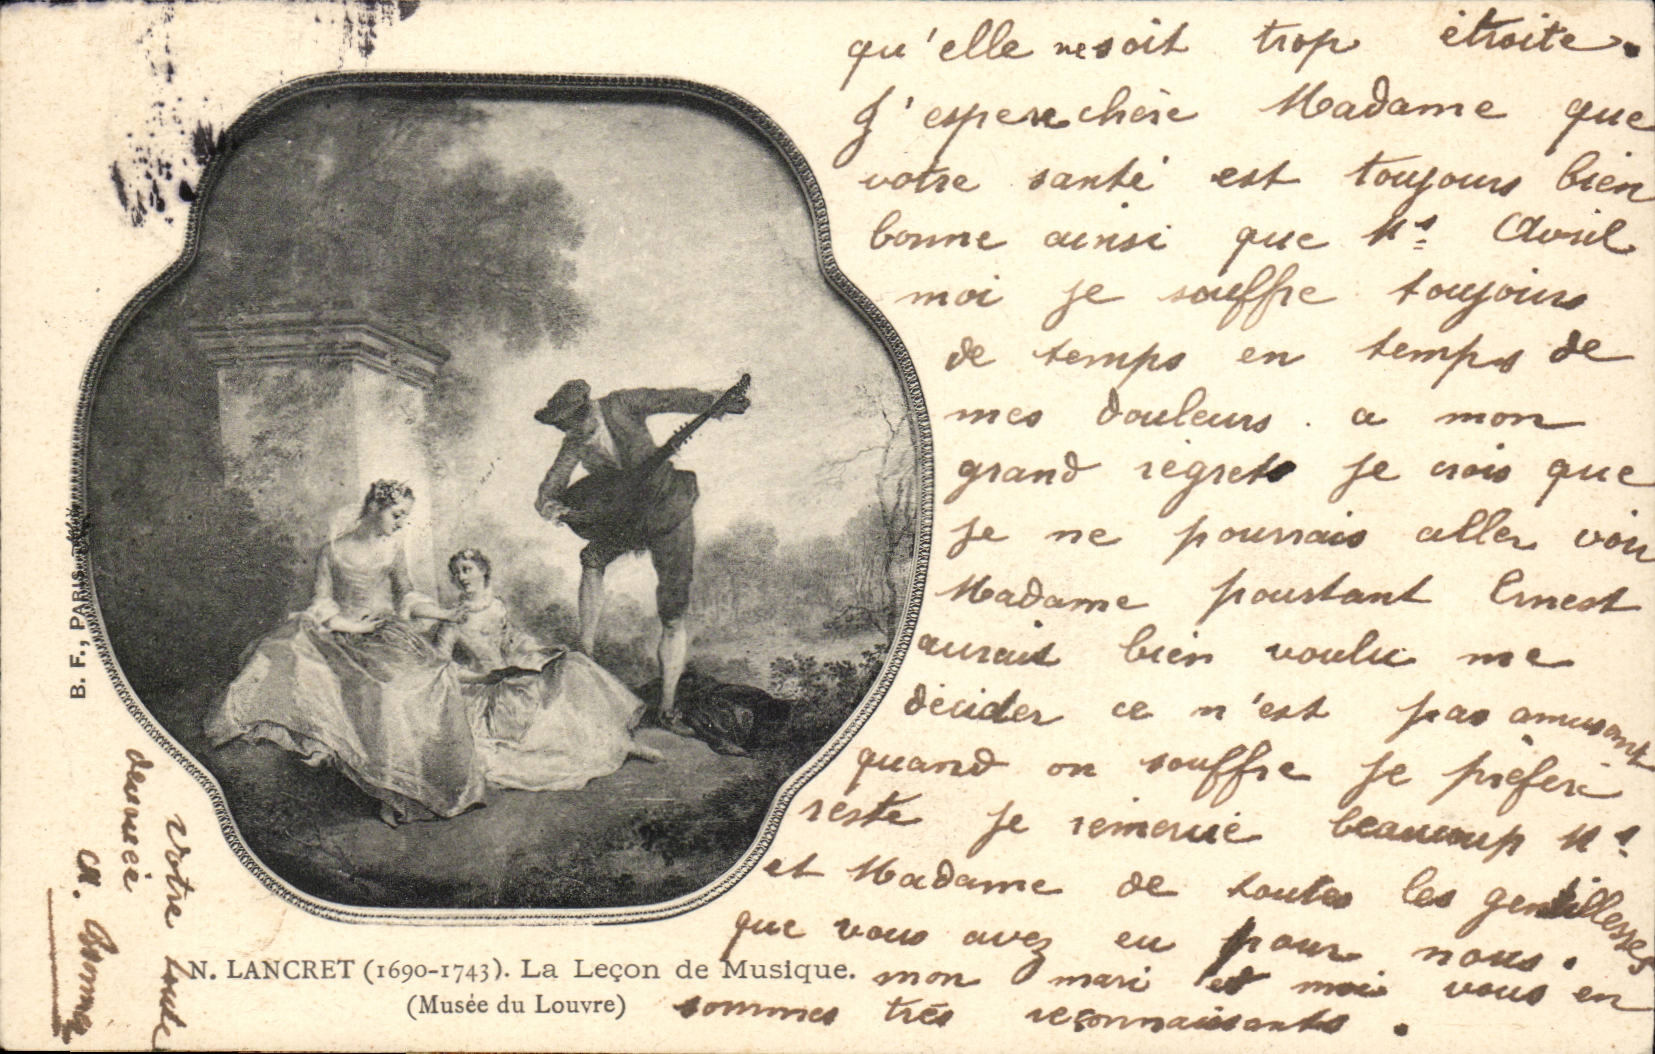 qu'elle ne soit trop étroite.
J'espere chère Madame que
votre santé est toujours bien
bonne ainsi que Mr Avril
moi je souffre toujours
de temps en temps de
mes douleurs. a mon
grand régrets je crois que
je ne pourrais aller voir
Madame pourtant Ernest
aurait bien voulu me
décider ce n'est pas amusant
quand on souffre je préfère
reste je remercie beaucoup Mr
et Madame de toutes les gentillesses
que vous avez eu pour nous.
mon mari et moi vous en
sommes très reconnaissants.
votre toute
devouée
M. Bonneau
B. F., PARIS
N. LANCRET (1690-1743). La Leçon de Musique.
(Musée du Louvre)